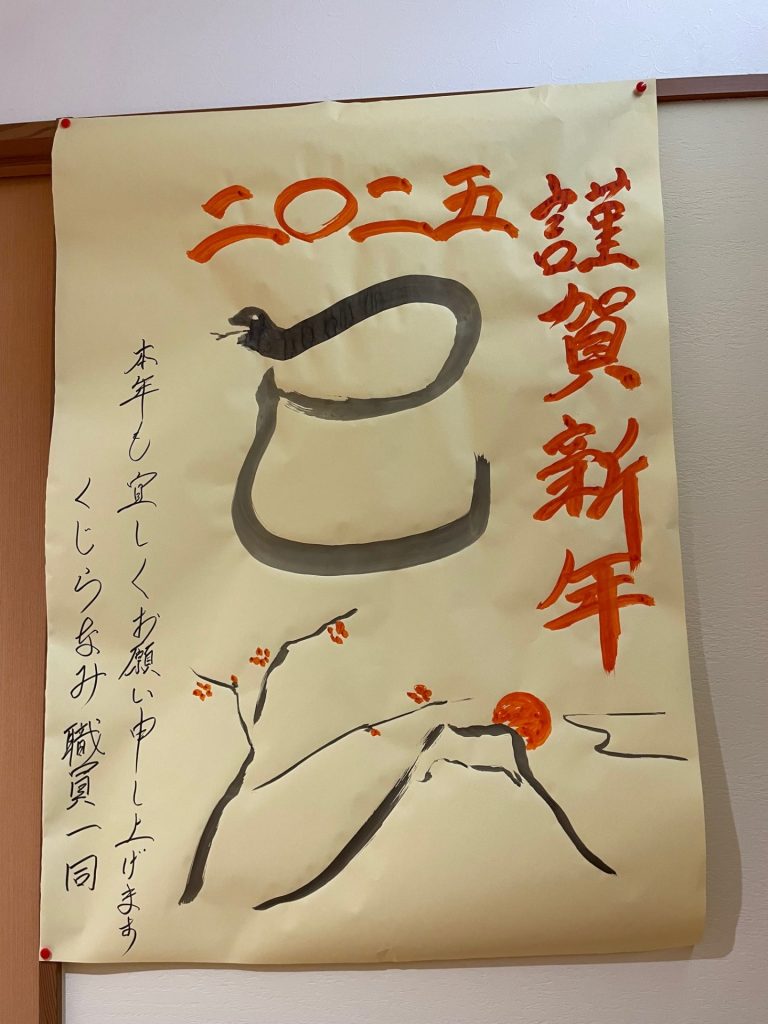 謹賀新年
二〇二五
巳
本年も宜しくお願い申し上げます
くじらなみ職員一同